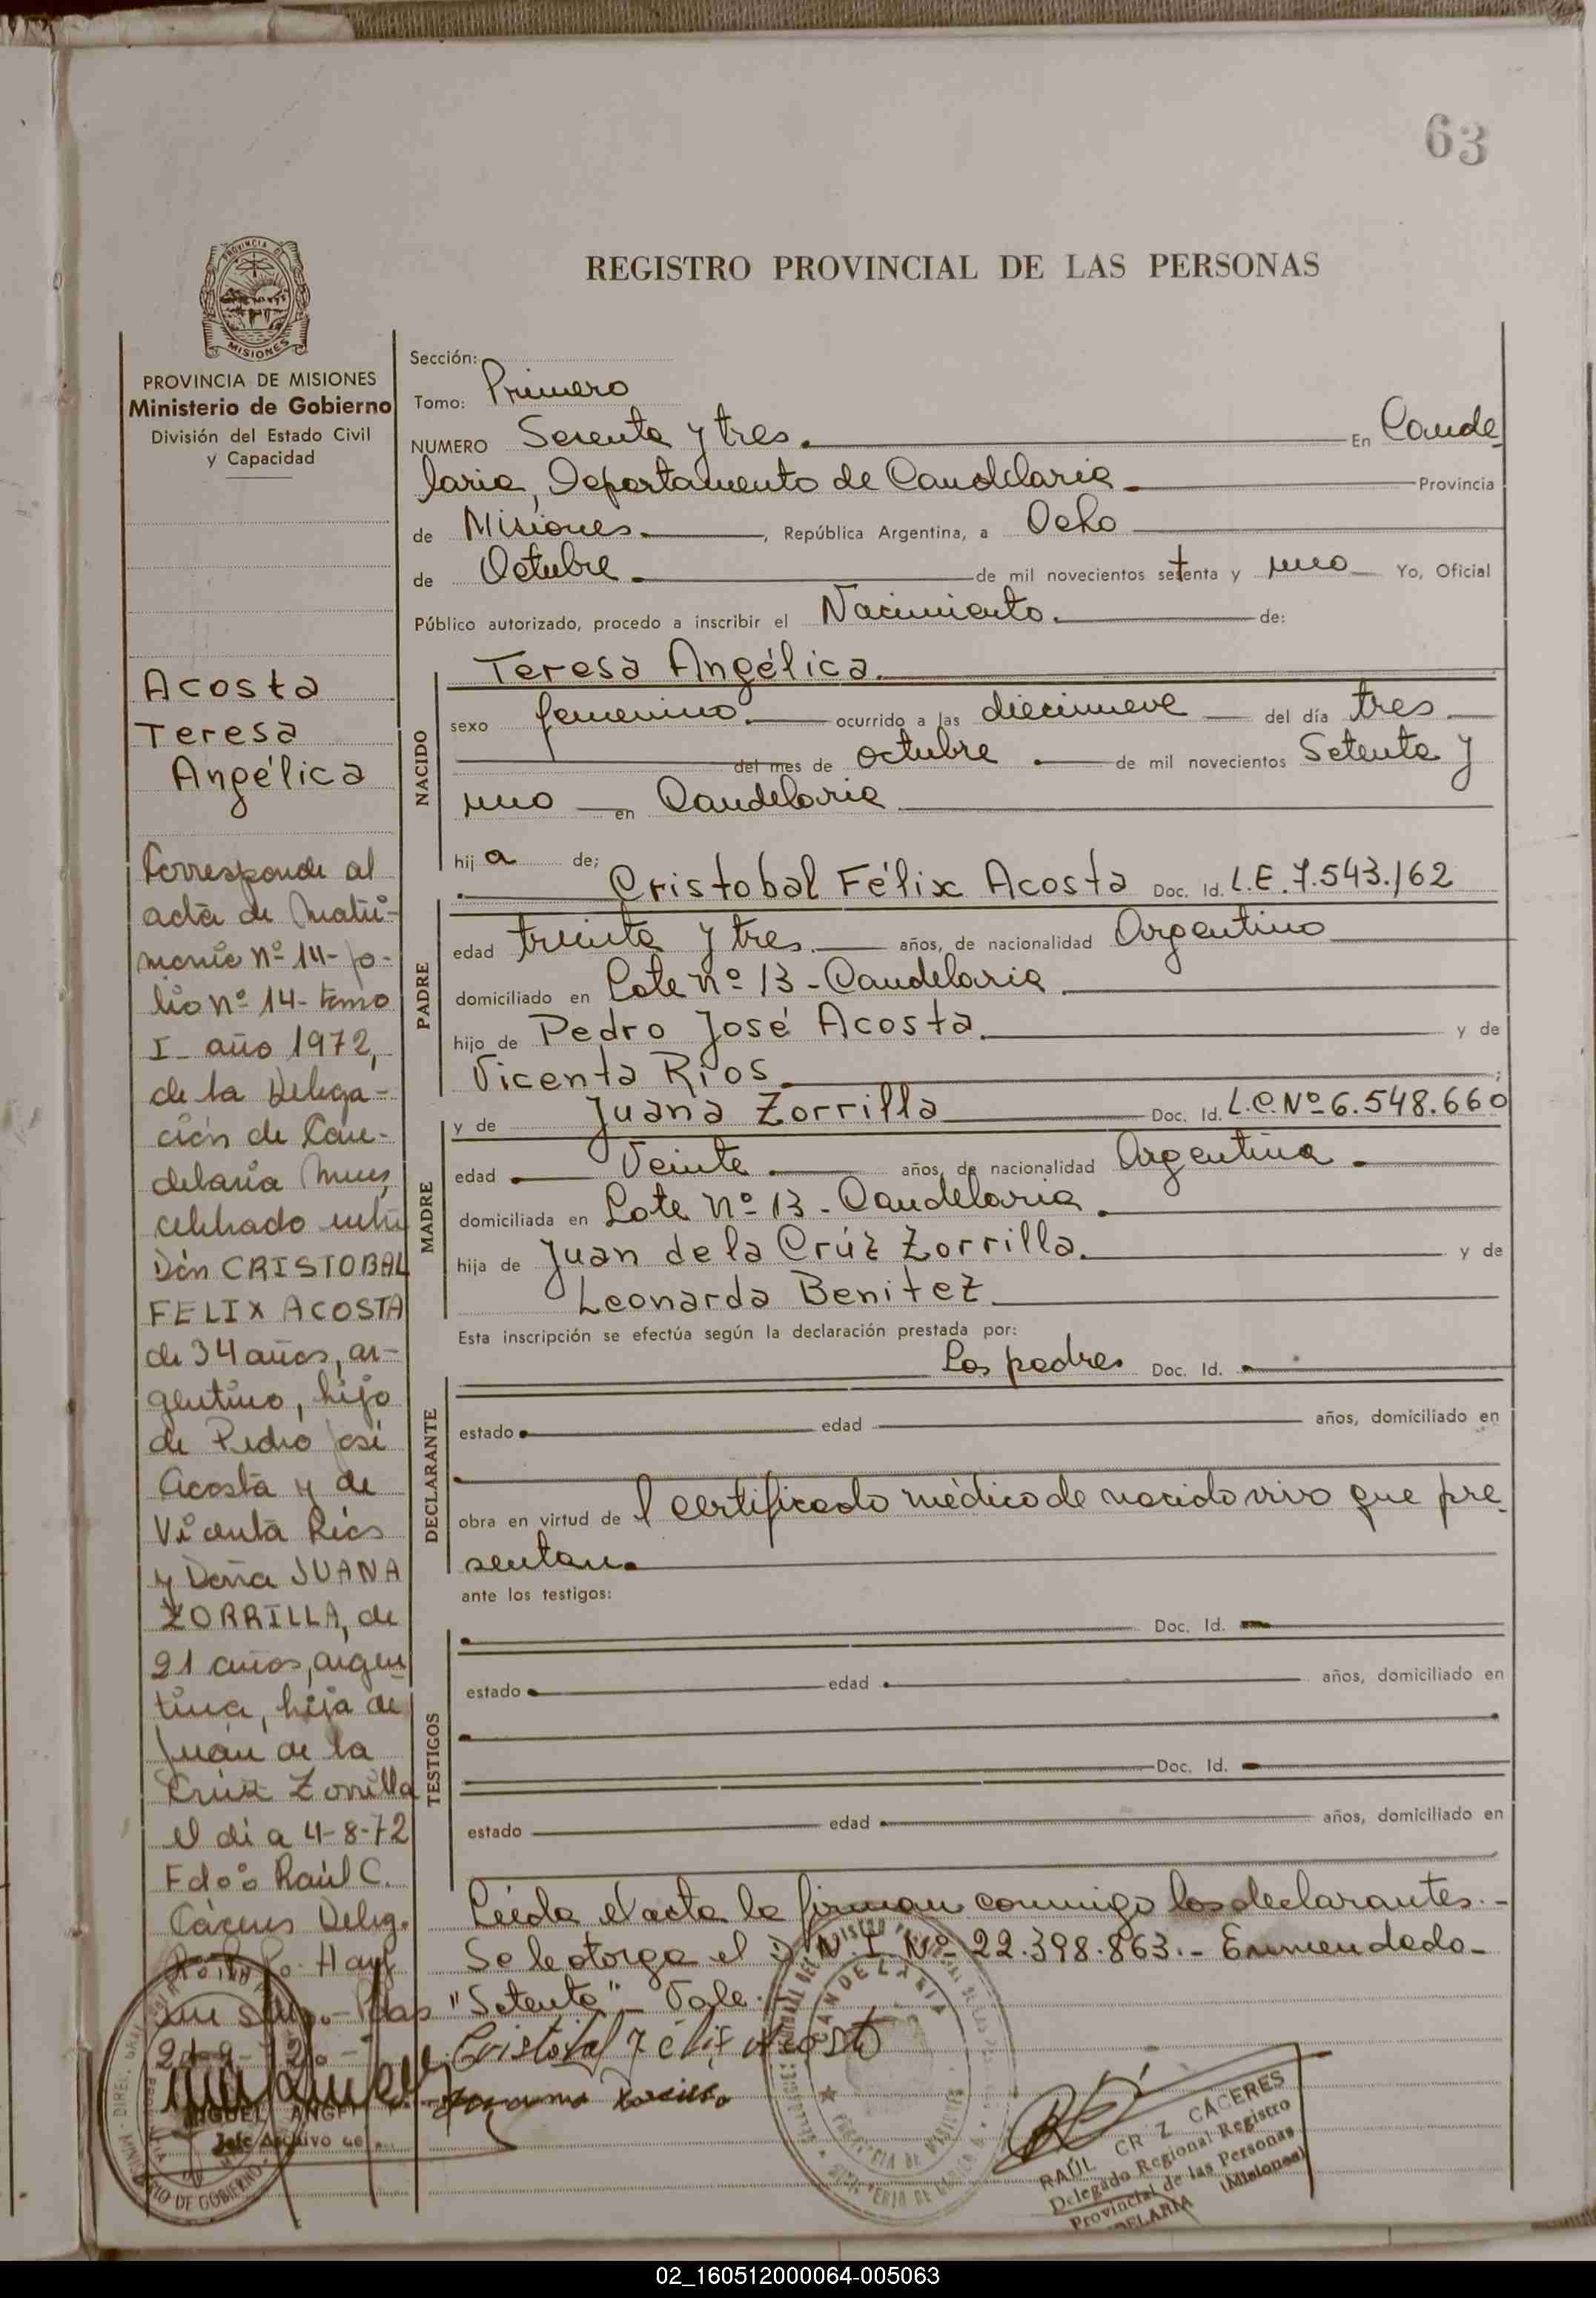 63
REGISTRO PROVINCIAL DE LAS PERSONAS
PROVINCIA DE
MISIONES
PROVINCIA DE MISIONES
Ministerio de Gobierno
División del Estado Civil
y Capacidad
Acosta
Teresa
Angélica
Corresponde al
acta de Matri-
monio nº 14- fo-
lio nº 14- tomo
I- año 1972,
de la Delega-
ción de Can-
delaria Mnes,
celebrado entre
Don CRISTOBAL
FELIX ACOSTA
de 34 años, ar-
gentino, hijo
de Pedro José
Acosta y de
Vicenta Ríos
y Doña JUANA
ZORRILLA, de
21 años, argen
tina, hija de
Juan de la
Crúz Zorrilla
el día 4-8-72
Fdo: Raúl C.
Cáceres Deleg.
Hay
un sello.- Pdas
MIGUEL ANGEL
Jefe Archivo
Sección:
Tomo: Primero
NUMERO Sesenta y tres. En Cande
laria, Departamento de Candelaria Provincia
de Misiones. , República Argentina, a Ocho
de Octubre. de mil novecientos setenta y uno Yo, Oficial
Público autorizado, procedo a inscribir el Nacimiento. de:
NACIDO
Teresa Angélica.
sexo femenino. ocurrido a las diecinueve del día tres
del mes de octubre . de mil novecientos Setenta y
uno en Candelaria
hij a de;
PADRE
Cristobal Félix Acosta Doc. Id. L.E. 7.543.162
edad treinta y tres. años, de nacionalidad Argentino
domiciliado en Lote nº 13 - Candelaria
hijo de Pedro José Acosta. y de
Vicenta Ríos ;
MADRE
y de Juana Zorrilla Doc. Id. L.C. Nº 6.548.660
edad Veinte . años, de nacionalidad Argentina .
domiciliada en Lote nº 13 - Candelaria .
hija de Juan de la Crúz Zorrilla. y de
Leonarda Benitez
Esta inscripción se efectúa según la declaración prestada por:
DECLARANTE
Los padres Doc. Id.
estado edad años, domiciliado en
obra en virtud de l certificado médico de nacido vivo que pre
sentan.
ante los testigos:
TESTIGOS
Doc. Id.
estado edad años, domiciliado en
Doc. Id.
estado edad años, domiciliado en
Leída el acta la firman conmigo los declarantes.-
Se le otorga el D.N.I. Nº 22.398.863.- Enmendado-
"Setenta" - Vale.
Cristobal Félix Acosta
CANDELARIA
PROVINCIA DE MISIONES
RAÚL CR Z CÁCERES
Delegado Regional Registro
Provincial de las Personas
DELARIA (Misiones)
02_160512000064-005063